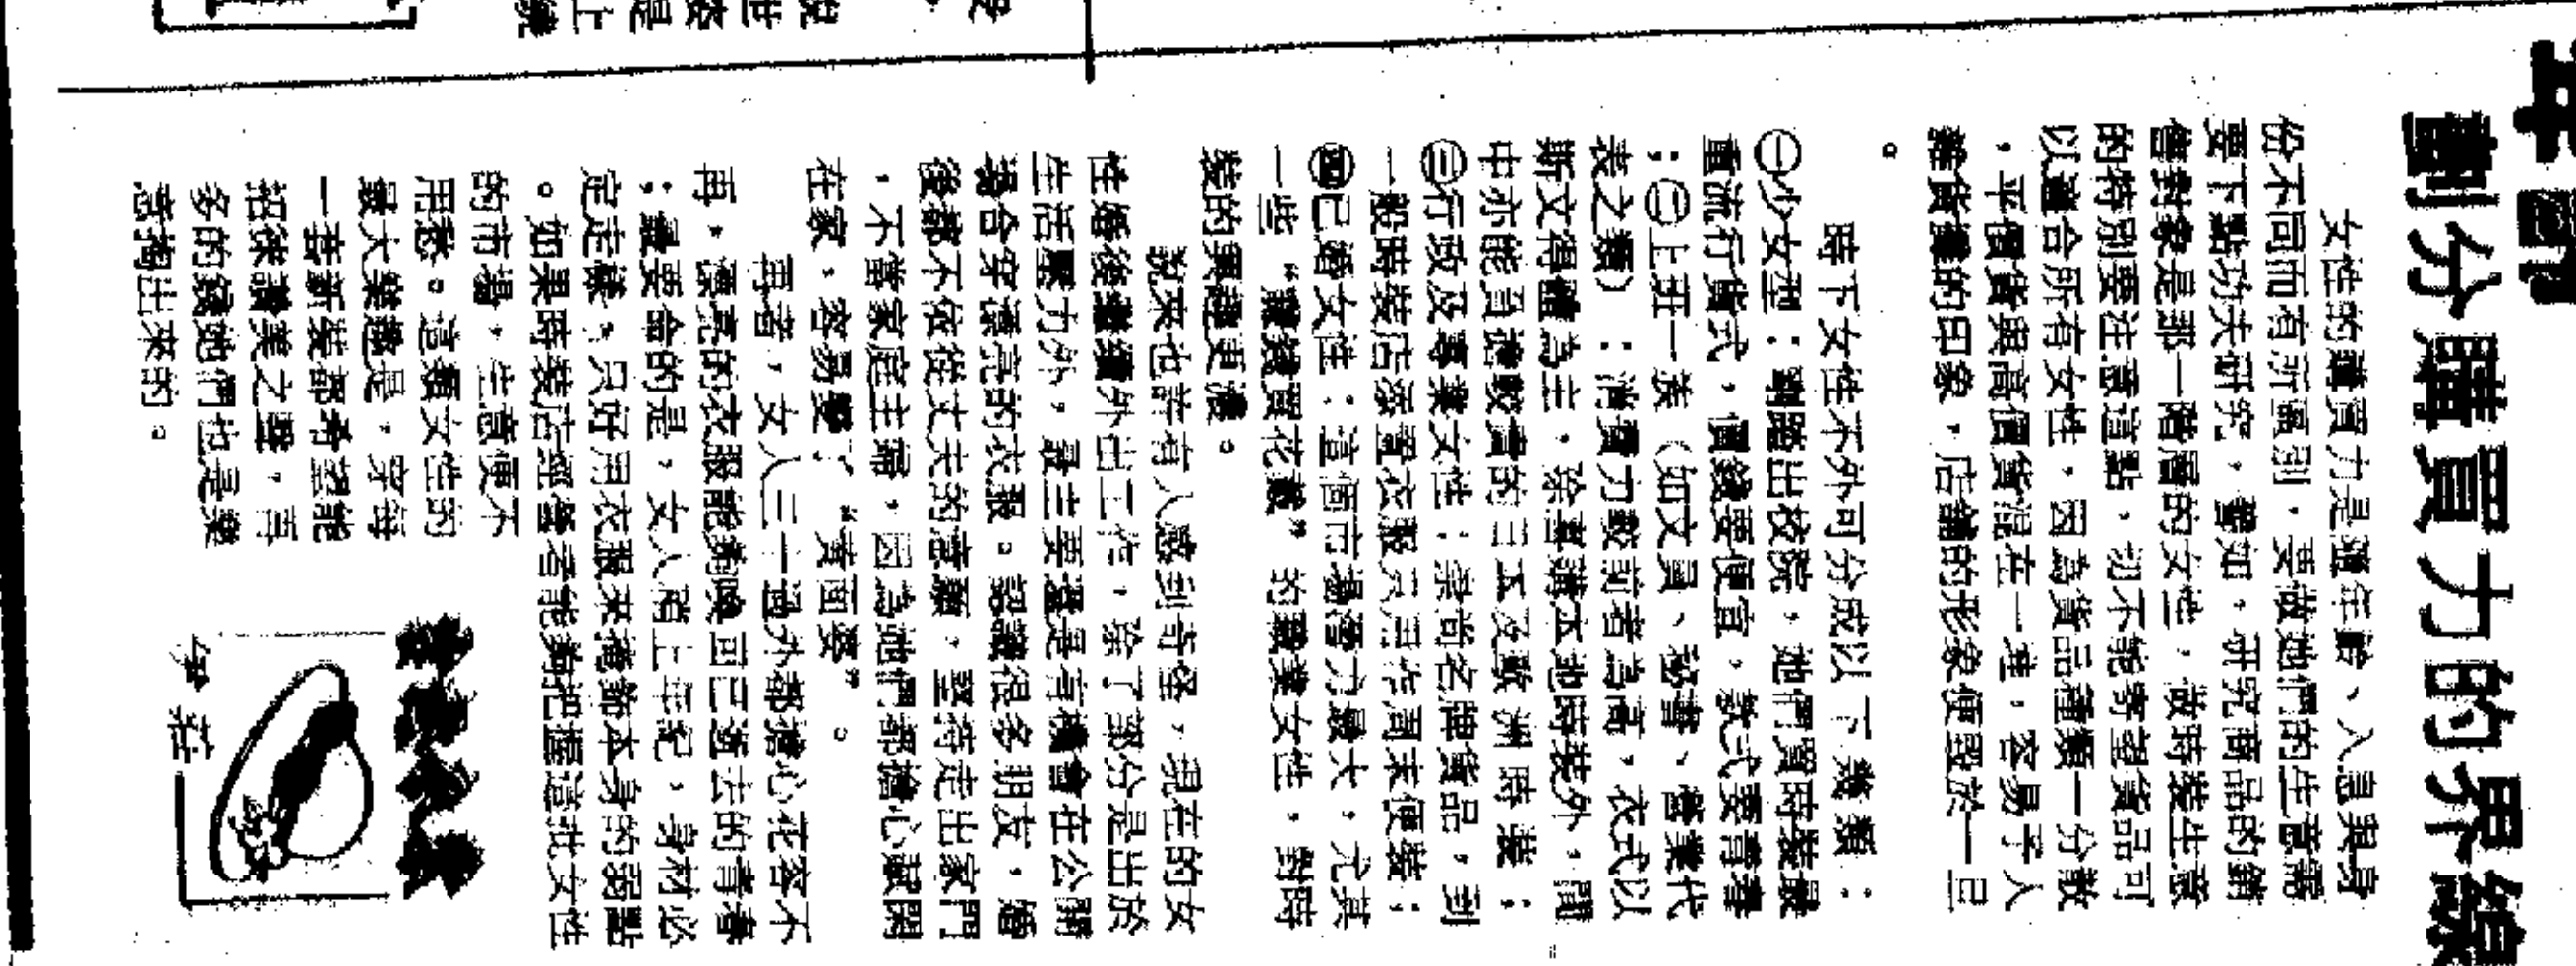 劃分購買力的界線
女性的購買力是隨年齡、入息與身
份不同而有所區別，要做她們的生意需
要下點功夫研究，譬如，研究商品的銷
售對象是那一階層的女性，做時裝生意
的特別要注意這點，切不能寄望貨品可
以適合所有女性，因為貨品種類一分散
，平價貨與高價貨混在一堆，容易予人
雜貨攤的印象，店舖的形象便毀於一旦
。
時下女性不外可分成以下幾類：
㊀少女型：剛踏出校院，她們買時裝最
重流行貨式，價錢要便宜，款式要青春
；㊁上班一族（如文員、秘書、營業代
表之類）：消費力較前者為高，衣式以
斯文得體為主，除喜購本地時裝外，間
中亦能負擔較貴的日本及歐洲時裝；
㊂行政及專業女性：崇尚名牌貨品，到
一般時裝店添置衣服只是作周末便裝；
㊃已婚女性：這個市場潛力最大，尤其
一些“賺錢買花戴”的職業女性，對時
裝的興趣更濃。
說來也許有人感到奇怪，現在的女
性婚後繼續外出工作，除了部分是出於
生活壓力外，最主要還是有機會在公開
場合穿漂亮的衣服。認識很多朋友，婚
後都不依從丈夫的意願，堅持走出家門
，不當家庭主婦，因為她們都擔心賦閒
在家，容易變了“黃面婆”。
再者，女人三十過外都擔心花容不
再，漂亮的衣服能夠喚回已逝去的青春
；最要命的是，女人踏上年紀，身材必
定走樣，只好用衣服來掩飾本身的弱點
。如果時裝店經營者能夠把握這批女性
的市場，生意便不
用愁。這類女性的
最大樂趣是，穿每
一套新裝都希望能
招徠讚美之聲，再
多的錢她們也是樂
意掏出來的。